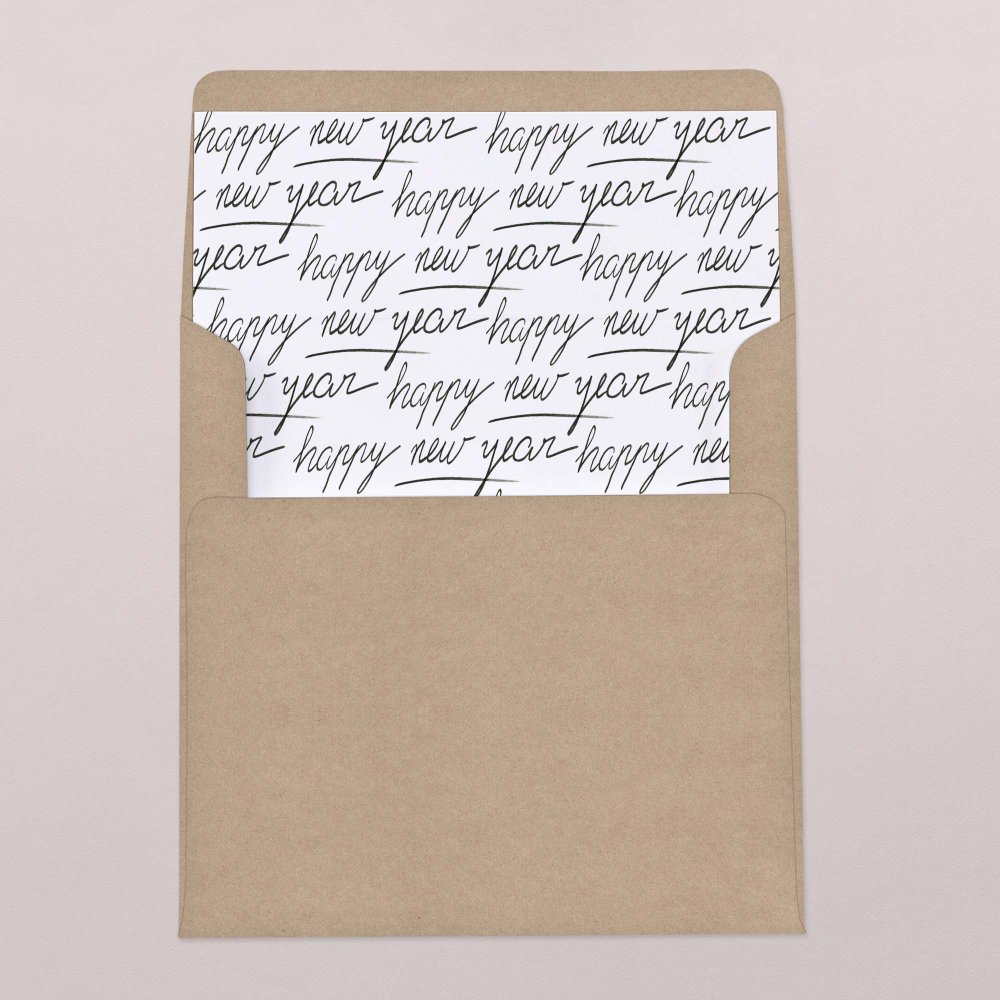 happy new year happy new year
new year happy new year happy
year happy new year happy new y
happy new year happy new year
w year happy new year happ
r happy new year happy new